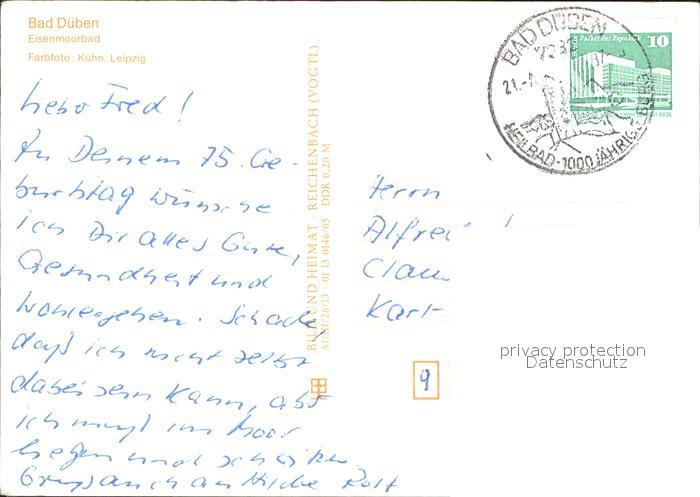 Bad Düben
Eisenmoorbad
Farbfoto: Kühn, Leipzig
Lieber Fred!
Zu Deinem 75. Ge-
burtstag wünsche
ich Dir alles Gute,
Gesundheit und
Wohlergehen. Schade,
daß ich nicht selbst
dabei sein kann, aber
ich muß im Moor
liegen und schwitzen.
Gruß auch an Hilde Rolf
BILD UND HEIMAT · REICHENBACH (VOGTL)
A1/III/26/13 01 13 0146/05 · DDR 0,20 M
BAD DÜBEN
HEILBAD-1000 JÄHRIGE BURG
Palast der Republik
10
Herrn
Alfred
Karl-
9
privacy protection
Datenschutz